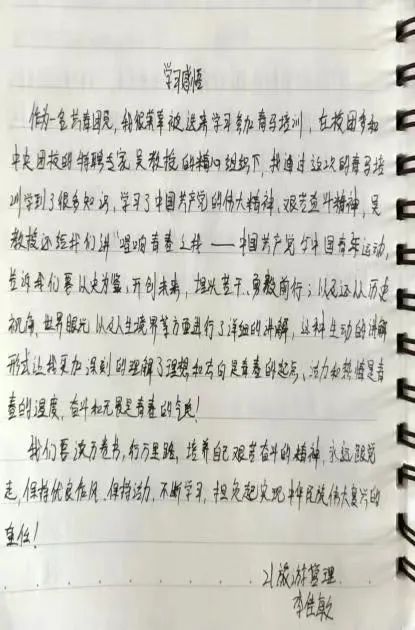 学习感悟
作为一名共青团员，我很荣幸被选来学习参加青马培训，在校团委和
中央团校的特聘专家吴教授的精心组织下，我通过这次的青马培
训学到了很多知识，学习了中国共产党的伟大精神、艰苦奋斗精神，吴
教授还给我们讲“唱响青春之歌——中国共产党与中国青年运动，
告诉我们要以史为鉴，开创未来，埋头苦干、勇毅前行；以及还从历史
视角、世界眼光以及人生境界等方面进行了详细的讲解，这种生动的讲解
形式让我更加深刻的理解了理想和方向是青春的起点、活力和热情是青
春的温度，奋斗和无畏是青春的气色！
我们要读万卷书，行万里路，培养自己艰苦奋斗的精神，永远跟党
走，保持优良作风、保持活力，不断学习，担负起实现中华民族伟大复兴的
重任！
21旅游管理
李佳敏